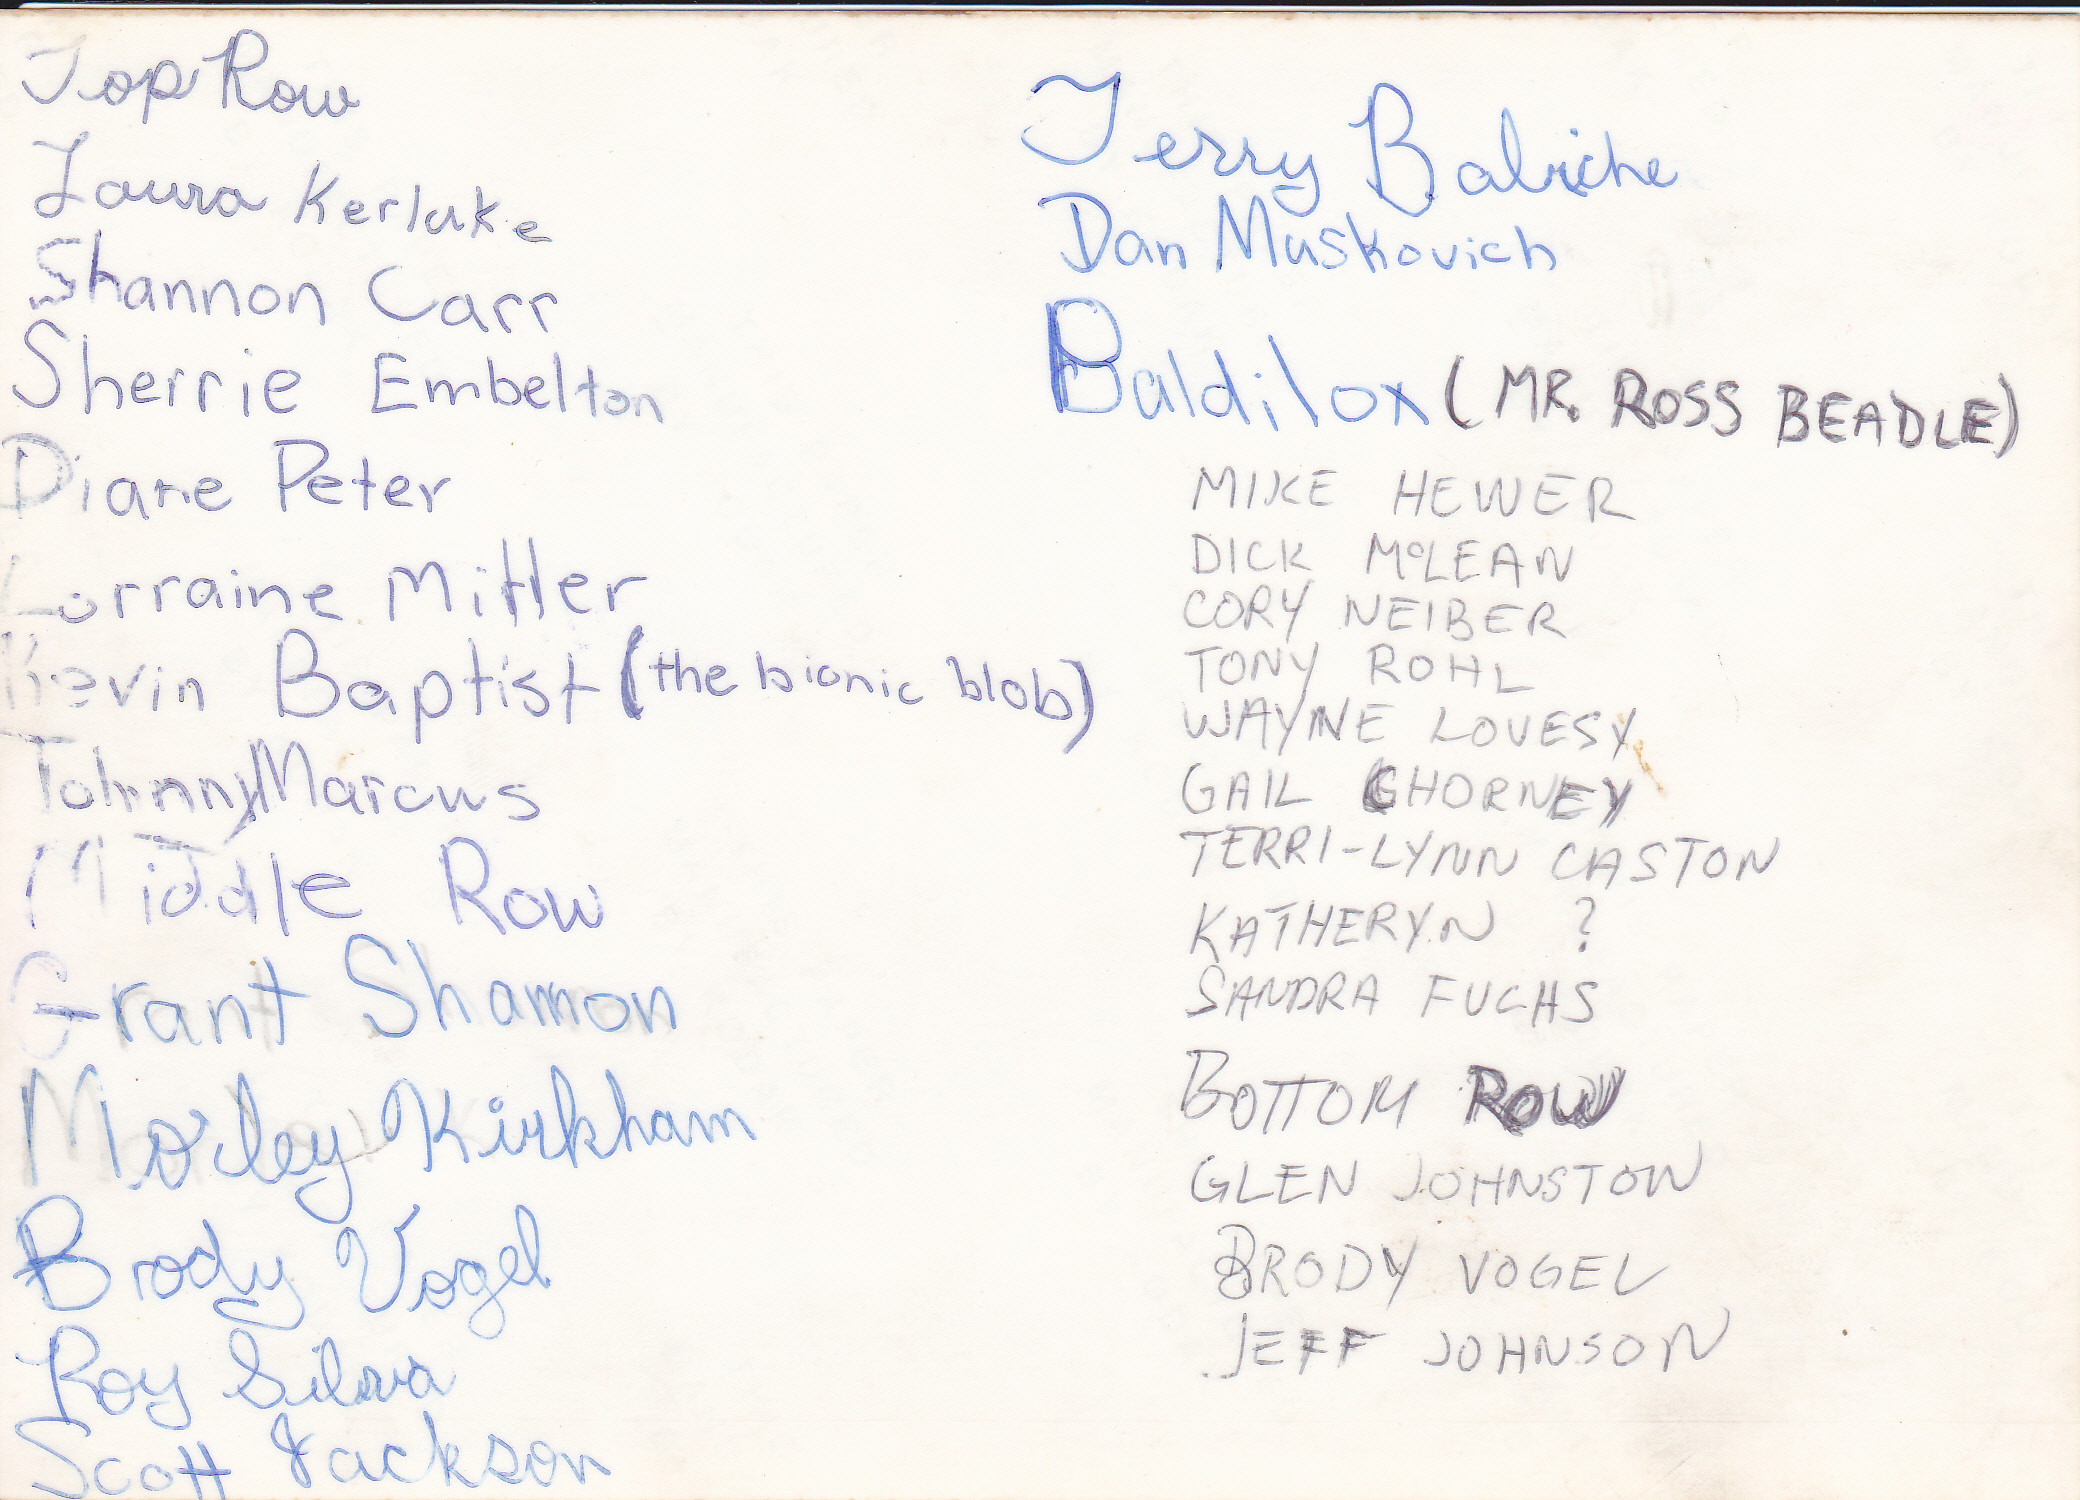 Top Row
Laura Kerluke
Shannon Carr
Sherrie Embelton
Diane Peter
Lorraine Mitler
Kevin Baptist (the bionic blob)
Johnny Marcus
Middle Row
Grant Shamon
Morley Kirkham
Brody Vogel
Roy Silva
Scott Jackson
Terry Babiche
Dan Muskovich
Baldilox (MR. ROSS BEADLE)
MIKE HEWER
DICK McLEAN
CORY NEIBER
TONY ROHL
WAYNE LOVESY
GAIL GHORNEY
TERRI-LYNN CASTON
KATHERYN ?
SANDRA FUCHS
BOTTOM ROW
GLEN JOHNSTON
BRODY VOGEL
JEFF JOHNSON